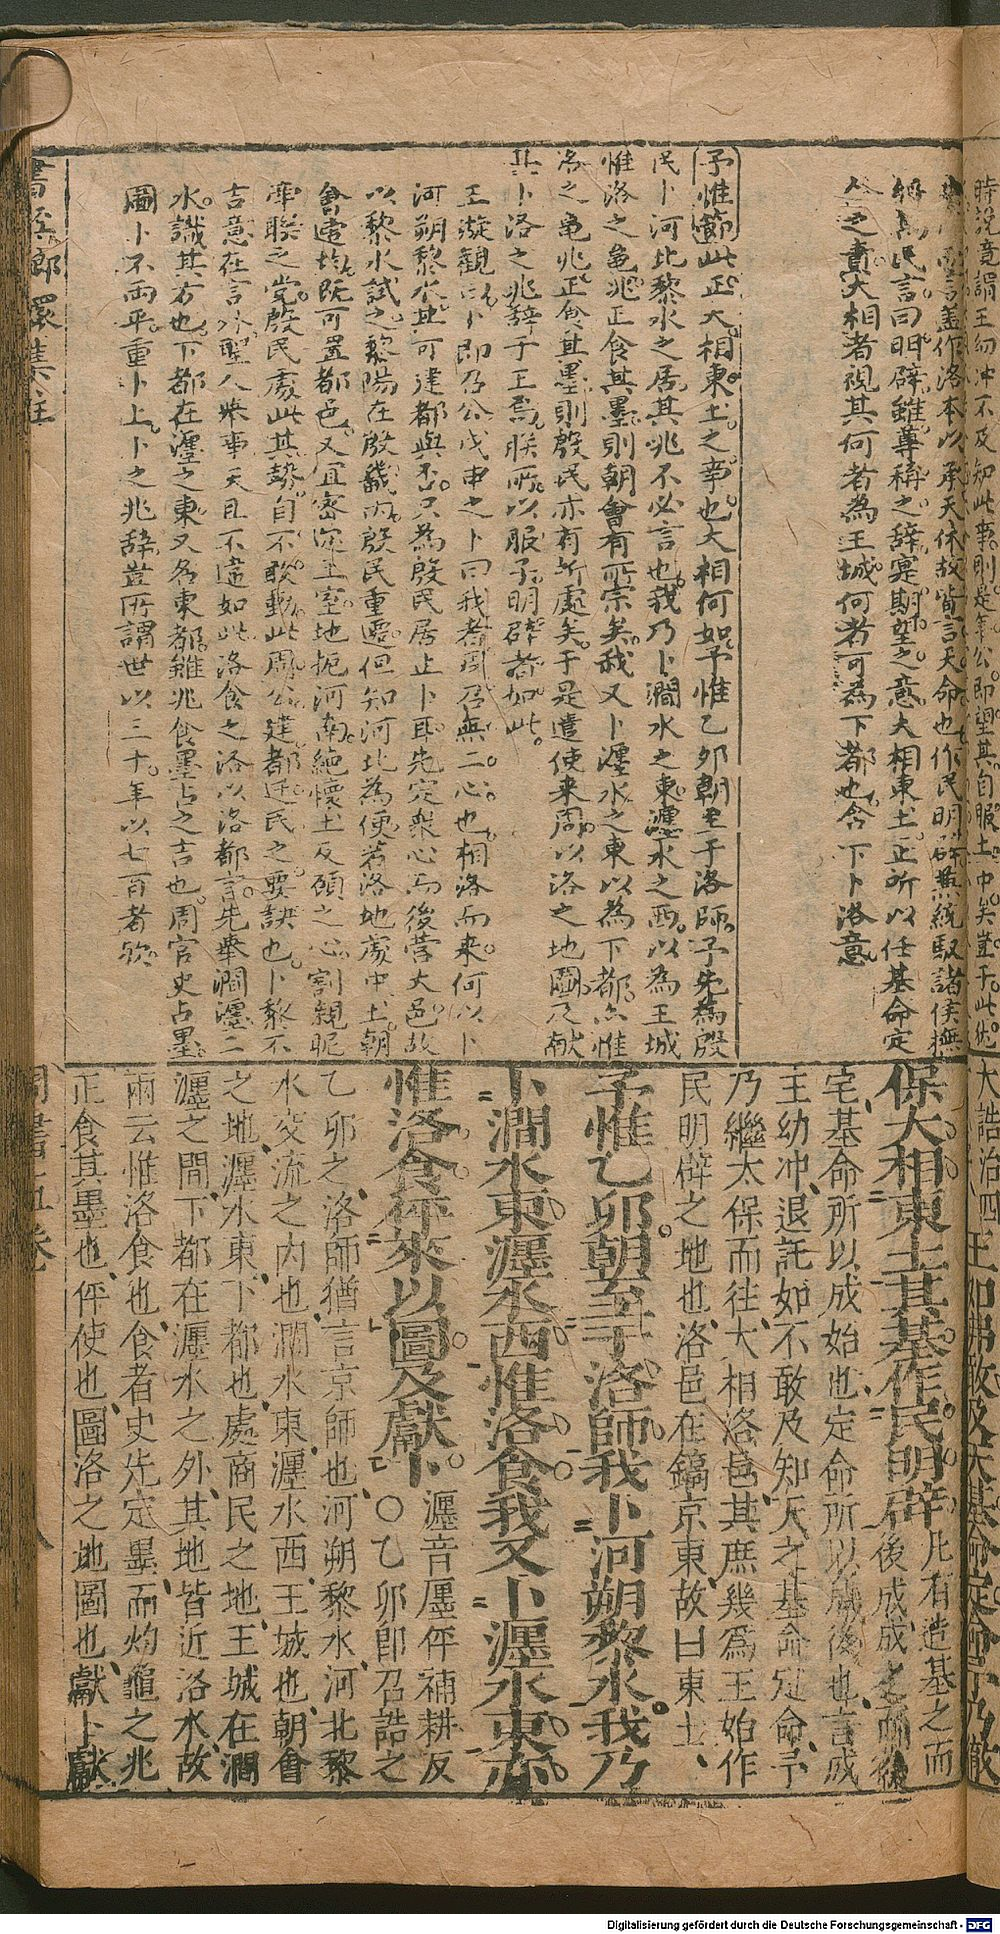 時說竟謂王幼冲不及知此事則是年公即望其自服土中矣豈于此
言蓋作洛本以承天休故皆言天命也作民明辟兼統馭諸侯撫
民言曰明辟雖尊稱之辞寔期望之意大相東土正所以任基命定
命之責大相者視其何者為王城何者可為下都也含下卜洛意
予惟節此正大相東土之事也大相何如予惟乙夘朝至于洛師予先為殷
民卜河北黎水之居其兆不必言也我乃卜澗水之東瀍水之西以為王城
惟洛之龜兆正食其墨則朝會有所宗矣我又卜瀍水之東以為下都亦惟
洛之龜兆正食其墨則殷民亦有所處矣于是遣使来周以洛之地圖及献
其卜洛之兆辞于王焉朕所以服予明辟者如此
王凝觀曰卜即乃公戊申之卜曰我者周召無二心也相洛而来何以卜
河朔黎水其可建都與否只為殷民居止卜耳先定衆心而後營大邑故
以黎水試之黎陽在殷畿内殷民重遷但知河北為便若洛地處中土朝
會遠均既可置都邑又宜密迩王室地扼河南絶懷土反顧之心割親昵
聯之党殷民處此其勢自不敢動此周公建都迁民之要訣也卜黎不
吉意在言外聖人举事天且不違如此洛食之洛以洛都言先舉澗瀍二
水識其方也下都在瀍之東又名東都雖兆食墨占之吉也周官史占墨
圖卜不两平重卜上卜之兆辞豈所謂世以三十年以七百者欤
大誥治四 王如弗敢及天基命定命予乃徹
保大相東土其基作民明辟 凡有造基之而
後成成之而後
宅基命所以成始也定命所以成後也言成
王幼冲退託如不敢及知天之基命定命予
乃繼太保而往大相洛邑其庶幾爲王始作
民明辟之地也洛邑在鎬京東故曰東土
予惟乙卯朝至于洛師我卜河朔黎水我乃
卜澗水東瀍水西惟洛食我又卜瀍水東亦
惟洛食伻來以圖及獻卜 瀍音廛伻補耕反
〇乙卯卽召誥之
乙卯之洛師猶言京師也河朔黎水河北黎
水交流之内也澗水東瀍水西王城也朝會
之地瀍水東下都也處商民之地王城在澗
瀍之間下都在瀍水之外其地皆近洛水故
兩云惟洛食也食者史先定墨而灼龜之兆
正食其墨也伻使也圖洛之地圖也獻卜獻
周書五卷 八
Digitalisierung gefördert durch die Deutsche Forschungsgemeinschaft - DFG